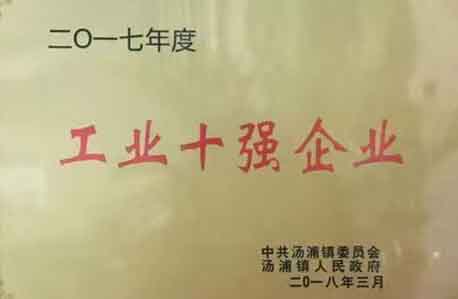 二〇一七年度
工业十强企业
中共汤浦镇委员会
汤浦镇人民政府
二〇一八年三月